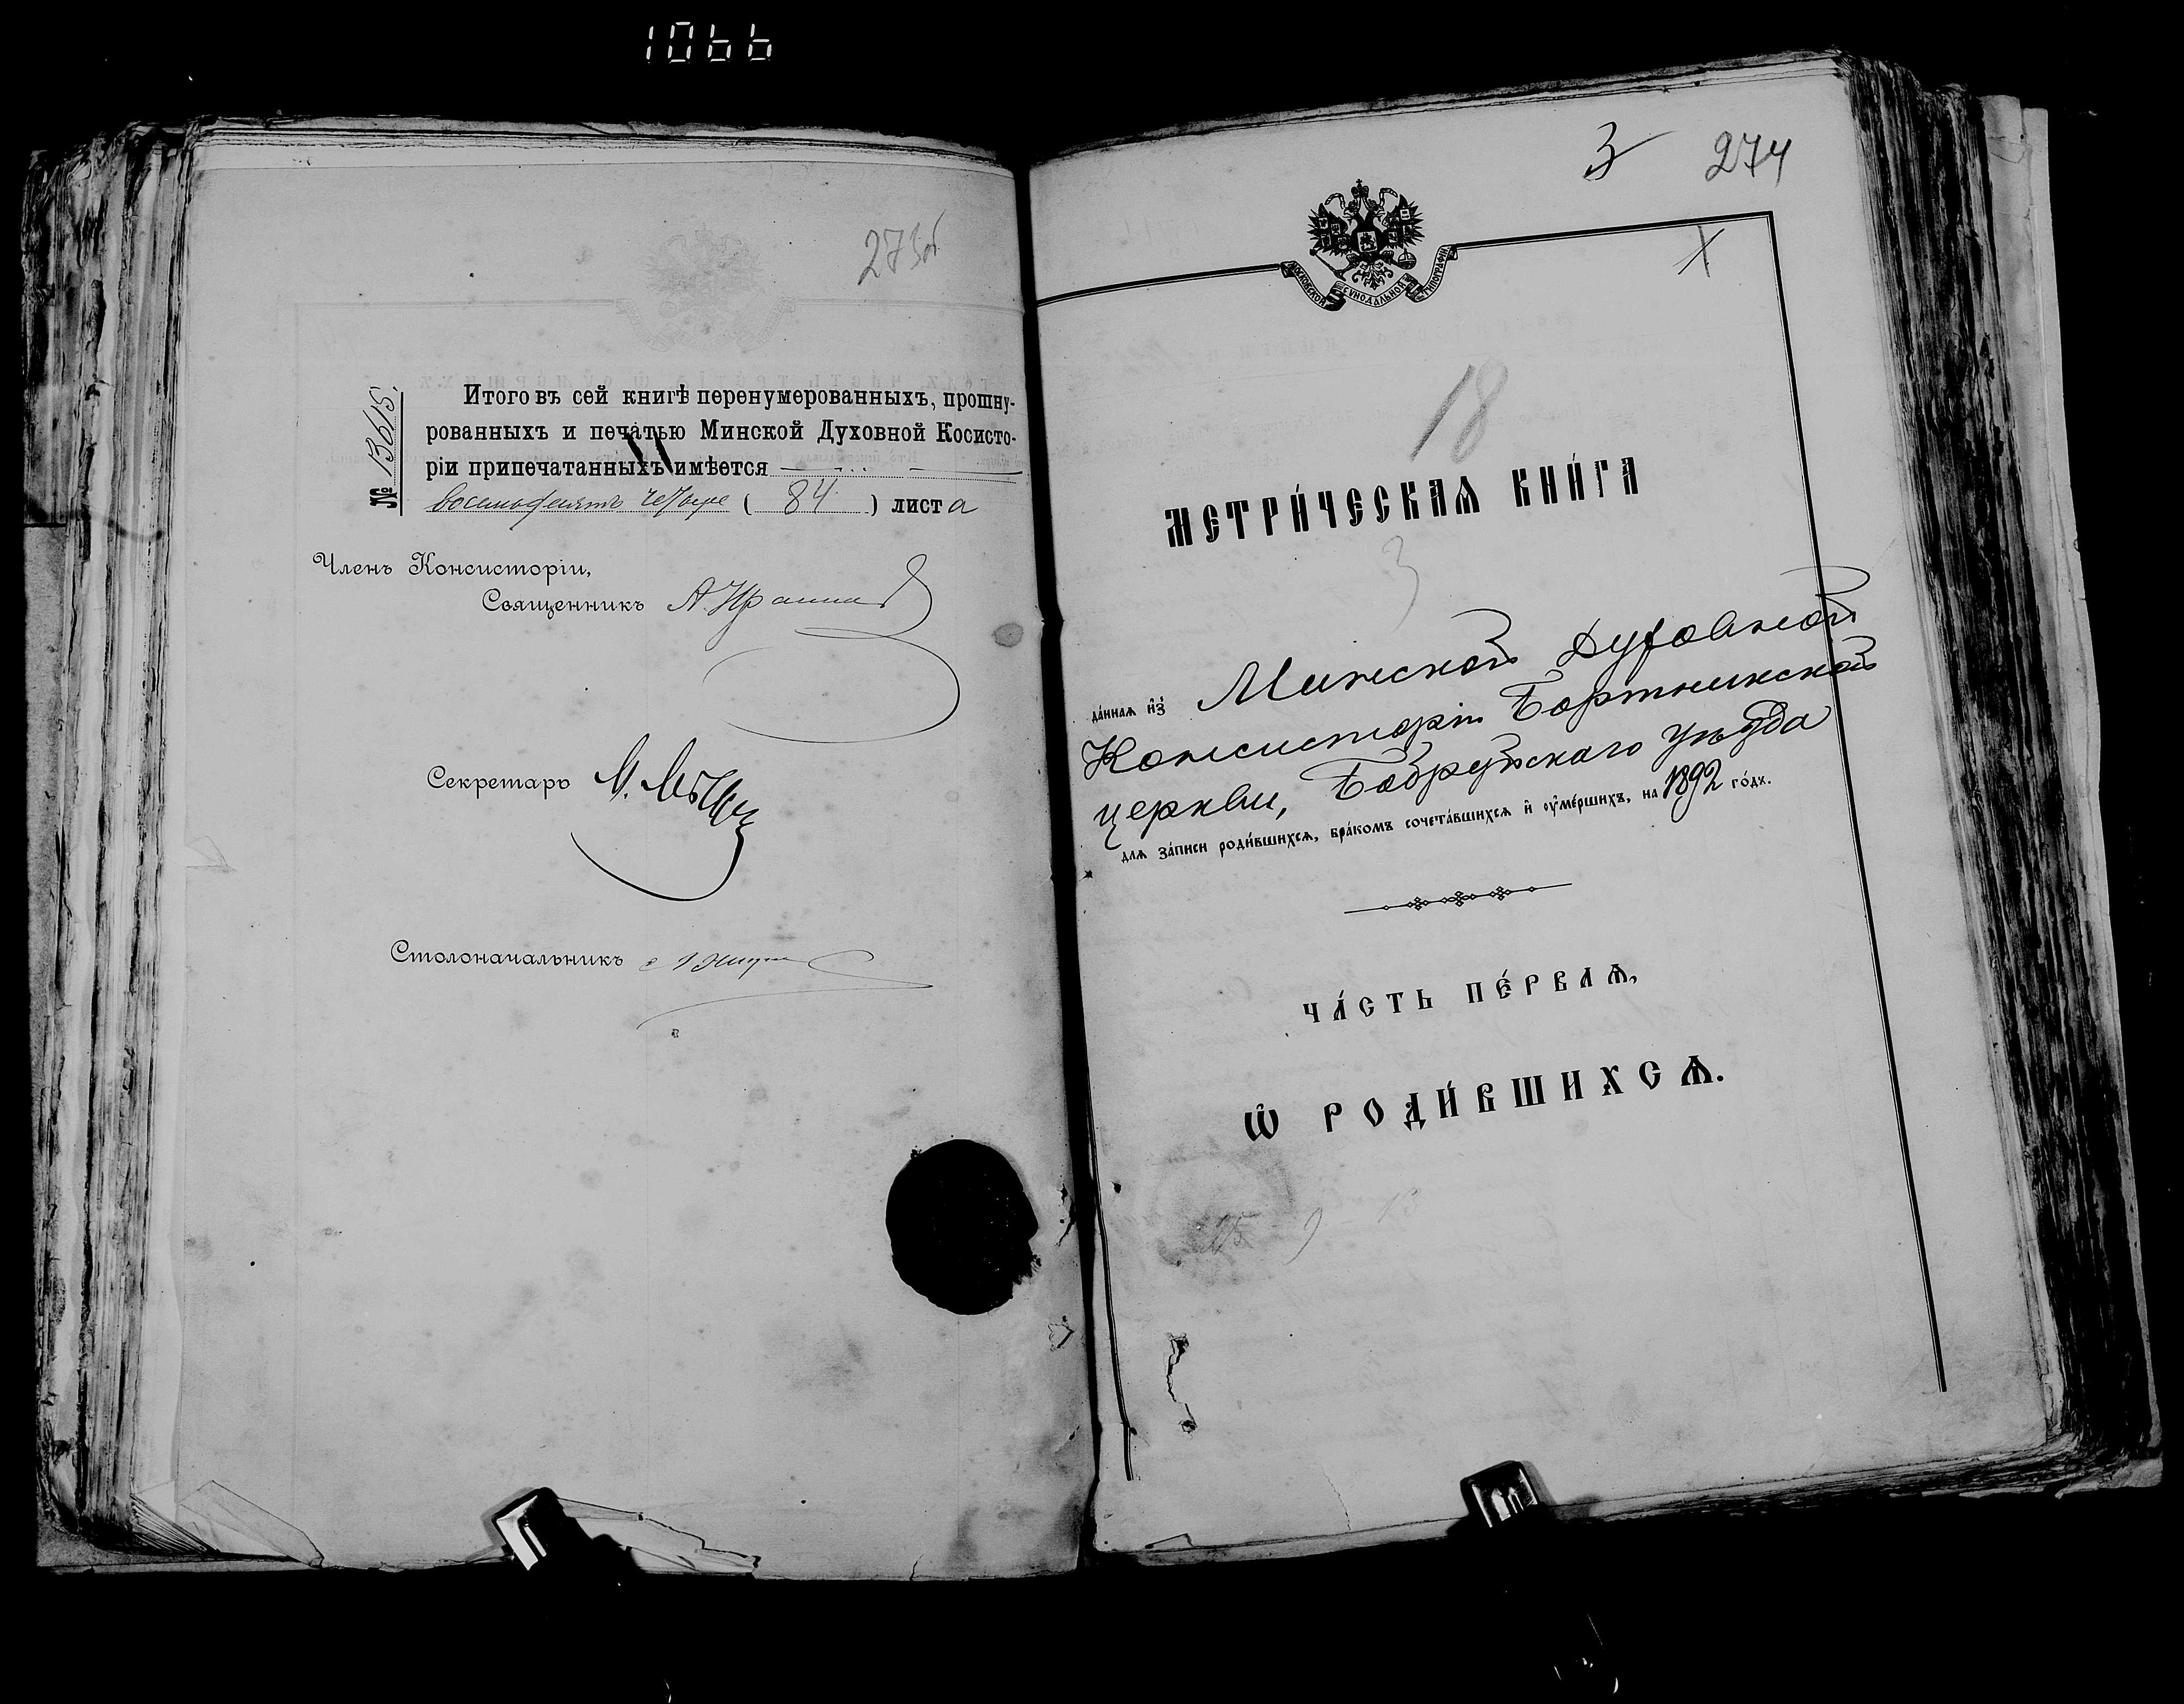 1066
273об
№ 13615.
Итого въ сей книгѣ перенумерованныхъ, прошну-
рованныхъ и печатью Минской Духовной Косисто-
ріи припечатанныхъ имѣется
восемьдесятъ четыре ( 84 ) листа
Членъ Консисторіи,
Священникъ А.
Секретарь
Столоначальникъ
3 274
МОСКОВСКОЙ СѴНОДАЛЬНОЙ ТИПОГРАФІИ
18
МЕТРИ́ЧЕСКАѦ КНИ́ГА
3
да́ннаѧ и҆зъ Минской Духовной
Консисторіи Бортникской
церкви, Бобруйскаго уѣзда
длѧ за́писи роди́вшихсѧ, бра́комъ сочета́вшихсѧ и҆ ᲂу҆ме́ршихъ, на 1892 го́дъ.
ЧА́СТЬ ПЕ́РВАѦ,
Ѡ҆ РОДИ́ВШИХСѦ.